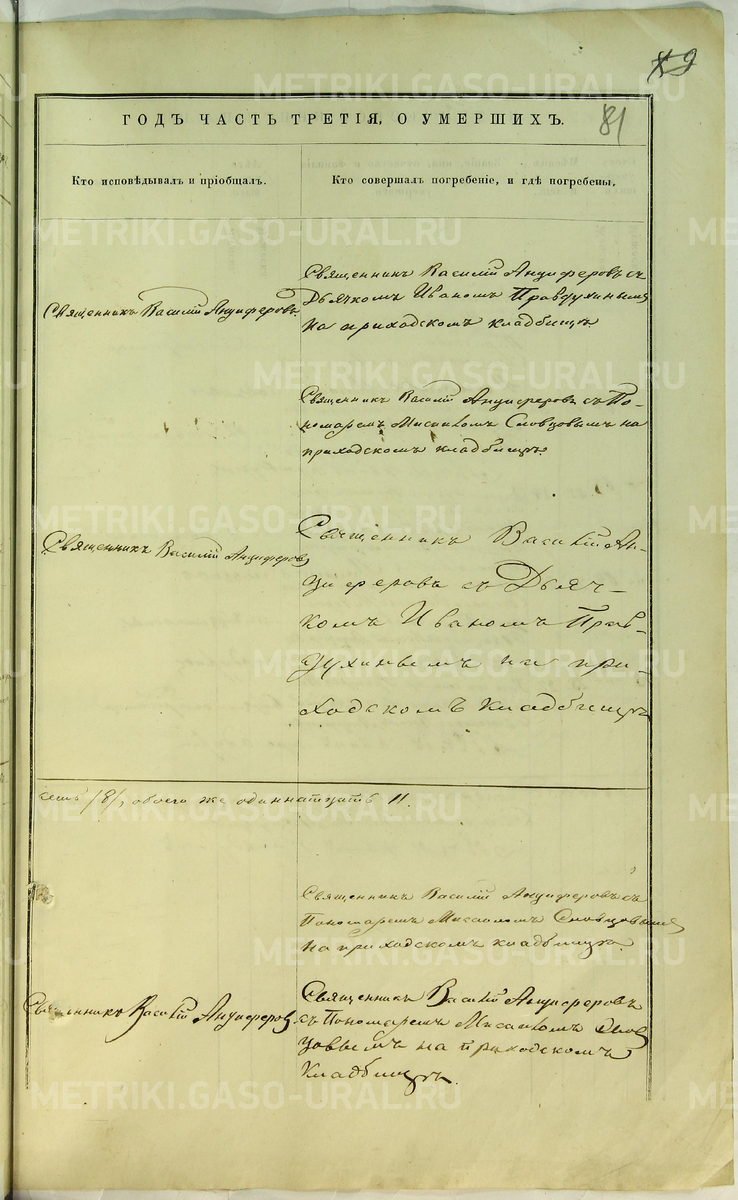 81
ГОДЪ ЧАСТЬ ТРЕТІЯ, О УМЕРШИХЪ.
Кто исповѣдывалъ и пріобщалъ.
Кто совершалъ погребеніе, и гдѣ погребены.
Священникъ Василій Анциферовъ.
Священникъ Василій Анциферовъ съ
Дьячкомъ Иваномъ Правдухинымъ
на приходскомъ кладбищѣ.
Священникъ Василій Анциферовъ съ По-
номаремъ Мисаиломъ Словцовымъ на
приходскомъ кладбищѣ.
Священникъ Василій Анциферовъ
Священникъ Василій Ан-
циферовъ съ Дьяч-
комъ Иваномъ Прав-
духинымъ на при-
ходскомъ кладбищѣ
семь /8/, обоего же одиннатцать 11.
Священникъ Василій Анциферовъ съ
Пономаремъ Мисаиломъ Словцовымъ
на приходскомъ кладбищѣ.
Священникъ Василій Анциферовъ
Священникъ Василій Анциферовъ
съ Пономаремъ Мисаиломъ Слов
цовымъ на приходскомъ
кладбищѣ.
METRIKI.GASO-URAL.RU